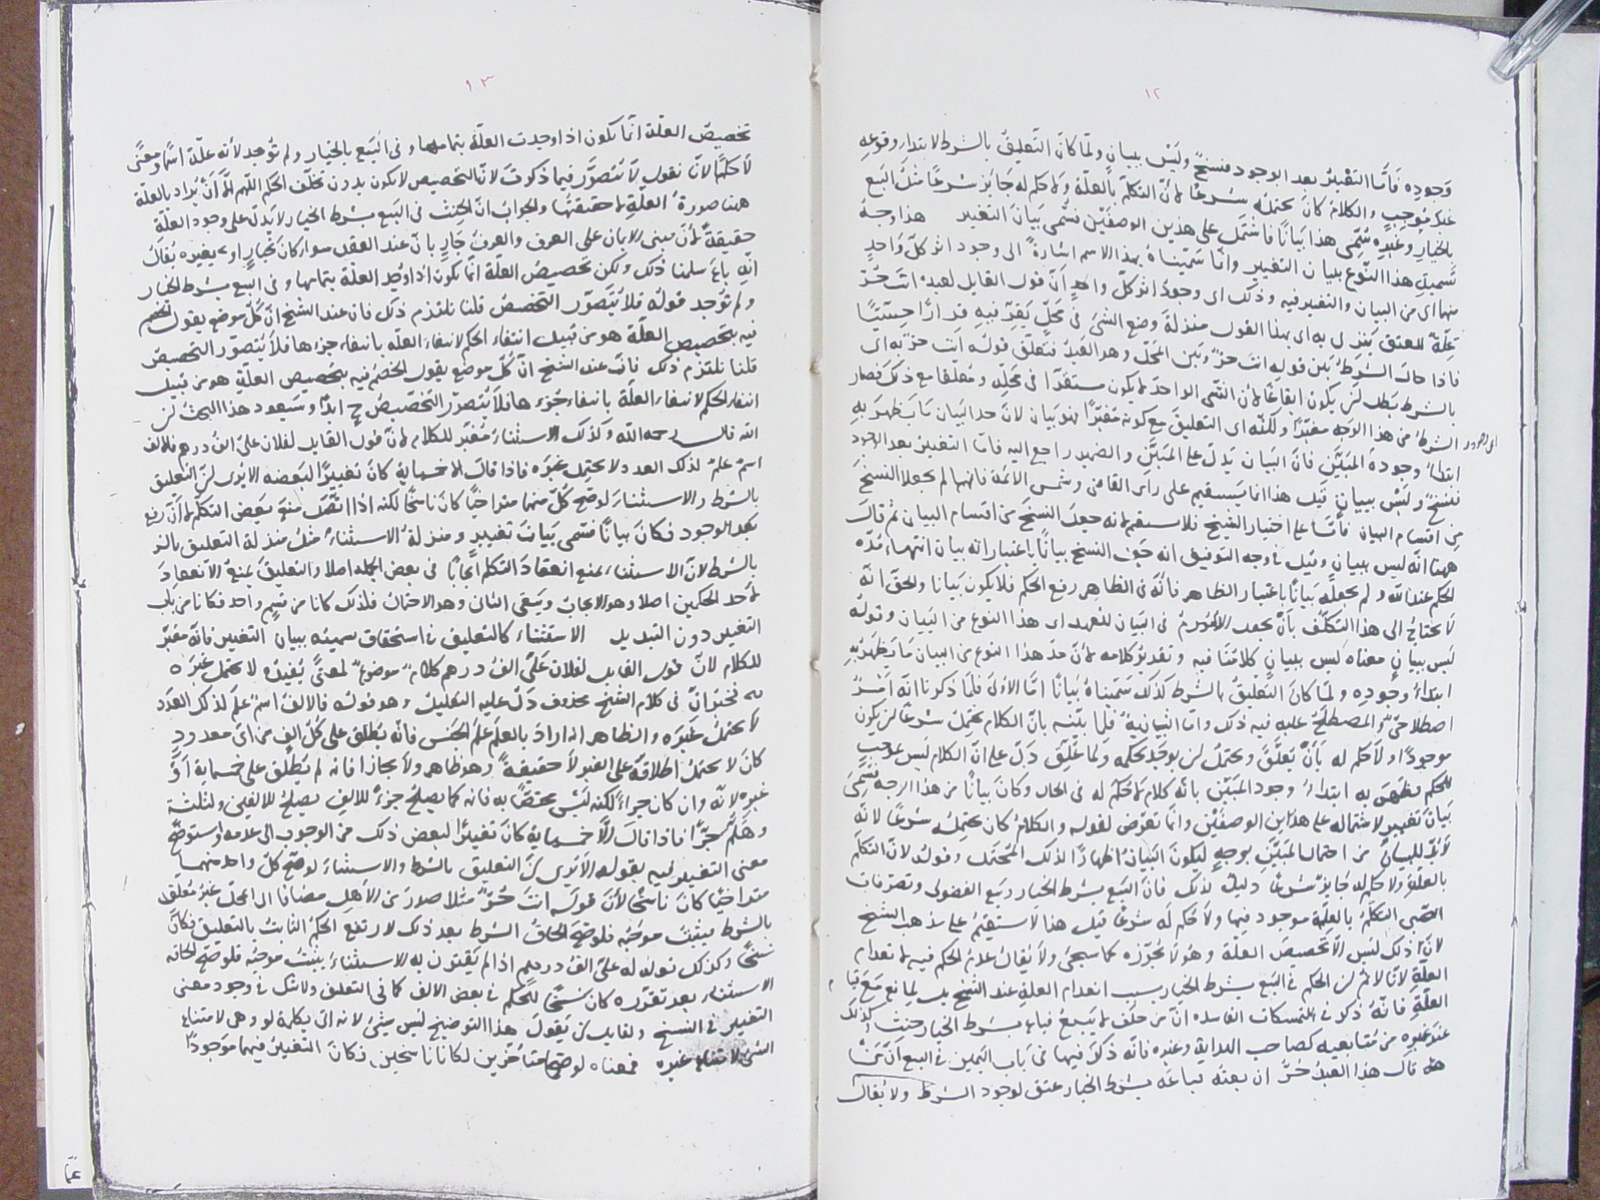 ١٢
وجوده فأما التغيير بعد الوجود فنسخ وليس ببيان ولما كان التعليق بالشرط لابتداء وقوعه
موجب والكلام كان يحتمله شرعا لأن التكلم بالعلة ولا حكم له جائز شرعا مثل البيع
بالخيار وغيره سمي هذا بيانا فاشتمل على هذين الوصفين فسمي بيان التغيير هذا وجه
تسمية هذا النوع ببيان التغيير وانما سميناه بهذا الاسم اشارة الى وجود اثر كل واحد
منهما اي من البيان والتغيير فيه وذلك اي وجود اثر كل واحد أن قول القايل لعبده انت حر
علة للعتق ينزل به اي بهذا القول منزلة وضع الشئ في محل يقر فيه قرارا حسيا
فاذا حال الشرط بين قوله انت حر وبين المحل وهو العبد فتعلق قوله انت حر به اي
بالشرط بطل ان يكون ايقاعا لأن الشئ الواحد لا يكون مستقرا في محله ومعلقا مع ذلك فصار
الشرط من هذا الوجه مغيرا ولكنه اي التعليق مع كونه مغيرا هو بيان لان حد البيان ما يظهر به
ابتداء وجوده المبين فان البيان يدل على المبين والضمير راجع اليه فاما التغيير بعد الوجود
فنسخ وليس ببيان قيل هذا انما يستقيم على راي القاضي وشمس الائمة فانهما لم يجعلا النسخ
من اقسام البيان فأما على اختيار الشيخ فلا يستقيم لانه جعل النسخ من اقسام البيان ثم قال
ههنا انه ليس ببيان وقيل في وجه التوفيق انه جعل النسخ بيانا باعتبار انه بيان انتهاء مدة
الحكم عند الله ولم يجعله بيانا باعتبار الظاهر فانه في الظاهر رفع الحكم فلا يكون بيانا والحق انه
لا يحتاج الى هذا التكلف بأن يجعل اللام في البيان للعهد اي هذا النوع من البيان وقوله
ليس ببيان معناه ليس ببيان كلامنا فيه وتقدير كلامه لأن حد هذا النوع من البيان ما يظهر به
ابتداء وجوده ولما كان التعليق بالشرط كذلك سميناه بيانا اما الاولى فلما ذكرنا انه امر
اصطلاحي والمصطلح عليه فيه ذلك واما الثانية فلما بينه بأن الكلام يحتمل شرعا ان يكون
موجودا ولا حكم له بأن يعلق ويحتمل ان يوجد حكمه ولما علق دل على ان الكلام ليس موجب
للحكم فظهر به ابتداء وجود المبين بانه كلام لا حكم له في الحال وكان بيانا من هذا الوجه فسمي
بيان تغيير لاشتماله على هذين الوصفين وانما تعرض لقوله والكلام كان يحتمله شرعا لانه
لا بد للبيان من احتمال المبين بوجه ليكون البيان اظهارا لذلك المحتمل وقوله لان التكلم
بالعلة ولا حكم له جائز شرعا دليل لذلك فان البيع بشرط الخيار وبيع الفضولي وتصرفات
الصبي التكلم بالعلة موجود فيها ولا حكم له شرعا قيل هذا لا يستقيم على مذهب الشيخ
لان ذلك ليس الا تخصيص العلة وهو لا يجوزه كما سيجئ ولا يقال عدم الحكم فيه لانعدام
العلة لانا لا نم ان الحكم في البيع بشرط الخيار بسبب انعدام العلة عند الشيخ بل لمانع مع قيام
العلة فانه ذكر في التمسكات الفاسدة ان من حلف لا يبيع فباع بشرط الخيار حنث وكذلك
عند غيره من متابعيه كصاحب الهداية وغيره فانه ذكر فيها في باب اليمين في البيع ان من
قال هذا العبد حر ان بعته فباعه بشرط الخيار عتق لوجود الشرط ولا يقال
١٣
تخصيص العلة انما يكون اذا وجدت العلة بتمامها وفي البيع بالخيار ولم توجد لأنه علة اسما ومعنى
لا حكما لأنا نقول لا يتصور فيما ذكرت لان التخصيص لا يكون بدون تخلف الحكم اللهم الا أن يراد بالعلة
ههنا صورة العلة لا حقيقتها والجواب ان الحنث في البيع بشرط الخيار لا يدل على وجود العلة
حقيقة لأن مبنى الايمان على العرف والعرف جار بان عند العقد سواء كان بخيار او بغيره يقال
انه باع سلمنا ذلك ولكن تخصيص العلة انما يكون اذا وجد العلة بتمامها وفي البيع بشرط الخيار
ولم توجد قوله فلا يتصور التخصيص قلنا نلتزم ذلك فان عند الشيخ ان كل موضع يقول الخصم
فيه بتخصيص العلة هو من قبيل انتفاء الحكم لانتفاء العلة بانتفاء جزءها فلا يتصور التخصيص
قلنا نلتزم ذلك فان عند الشيخ ان كل موضع يقول الخصم فيه بتخصيص العلة هو من قبيل
انتفاء الحكم لانتفاء العلة بانتفاء جزءها فلا يتصور التخصيص ح ابدا وسيعود هذا البحث ان
الله قال رحمه الله وكذلك الاستثناء مغير للكلام لأن قول القايل لفلان علي الف درهم فالالف
اسم علم لذلك العدد لا يحتمل غيره فاذا قال الا خمسماية كان تغييرا لبعضه الا يرى ان التعليق
بالشرط والاستثناء لو صح كل منهما متراخيا كان ناسخا لكنه اذا اتصل منع بعض التكلم لا أن رفع
بعد الوجود فكان بيانا فسمي بيان تغيير ومنزلة الاستثناء مثل منزلة التعليق بالشر
بالشرط لان الاستثناء يمنع انعقاد التكلم ايجابا في بعض الجملة اصلا والتعليق يمنع الانعقاد
لأحد الحكمين اصلا وهو الايجاب ويبقى الثاني وهو الاحتمال فلذلك كانا من قسم واحد فكانا من باب
التغيير دون التبديل الاستثناء كالتعليق في استحقاق تسميته ببيان التغيير فانه مغير
للكلام لان قول القايل لفلان علي الف درهم كلام موضوع لمعنى يفيده لا يحتمل غيره
في كلام الشيخ محذوف دل عليه التعليل وهو قوله فالالف اسم علم لذلك العدد
لا يحتمل غيره والظاهر انه اراد بالعلم علم الجنس فانه يطلق على كل الف من اي معدود
كان لا يحتمل اطلاقه على الغير لا حقيقة وهو ظاهر ولا مجازا فانه لم يطلق على خمسماية او
غيره لانه وان كان جزءا لكنه ليس مختصا به فانه كما يصلح جزءا للالف يصلح للالفين ولثلثة
وهلم جرا فاذا قال الا خمسماية كان تغييرا لبعض ذلك من الوجوب الى عدمه واستوضح
معنى التغيير فيه بقوله الا يرى ان التعليق بالشرط والاستثناء لو صح كل واحد منهما
متراخيا كان ناسخا لأن قوله انت حر مثلا صدر من الاهل مضافا الى المحل غير معلق
بالشرط فيثبت موجبه فلو صح الحاق الشرط بعد ذلك لارتفع الحكم الثابت بالتعليق فكان
نسخا وكذلك قوله له علي الف درهم اذا لم يقترن به الاستثناء يثبت موجبه فلو صح الحاق
الاستثناء بعد تقرره كان نسخا للحكم في بعض الالف كما في التعليق ولا شك في وجود معنى
التغيير في النسخ ولقايل ان يقول هذا التوضيح ليس بشئ لانه اتى بكلمة لو وهي لامتناع
الشئ لامتناع غيره فمعناه لو صحا متأخرين لكانا ناسخين فكان التغيير فيهما موجودا